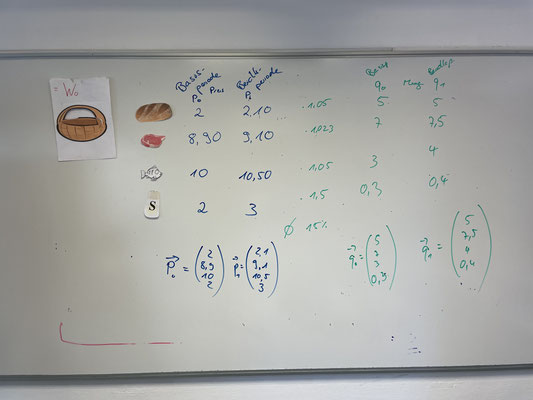 Wo
Basis-periode
p₀ Preis
Berichts-periode
p₁
Basisp
q₀
Menge
q₁
2 2.10 ·1,05 5 5
8,90 9,10 ·1,023 7 7,5
10 10,50 ·1,05 3 4
S 2 3 ·1,5 0,3 0,4
Ø 15%
p₀ = (2 8,9 10 2) p₁ = (2,1 9,1 10,5 3) q₀ = (5 7 3 0,3) q₁ = (5 7,5 4 0,4)